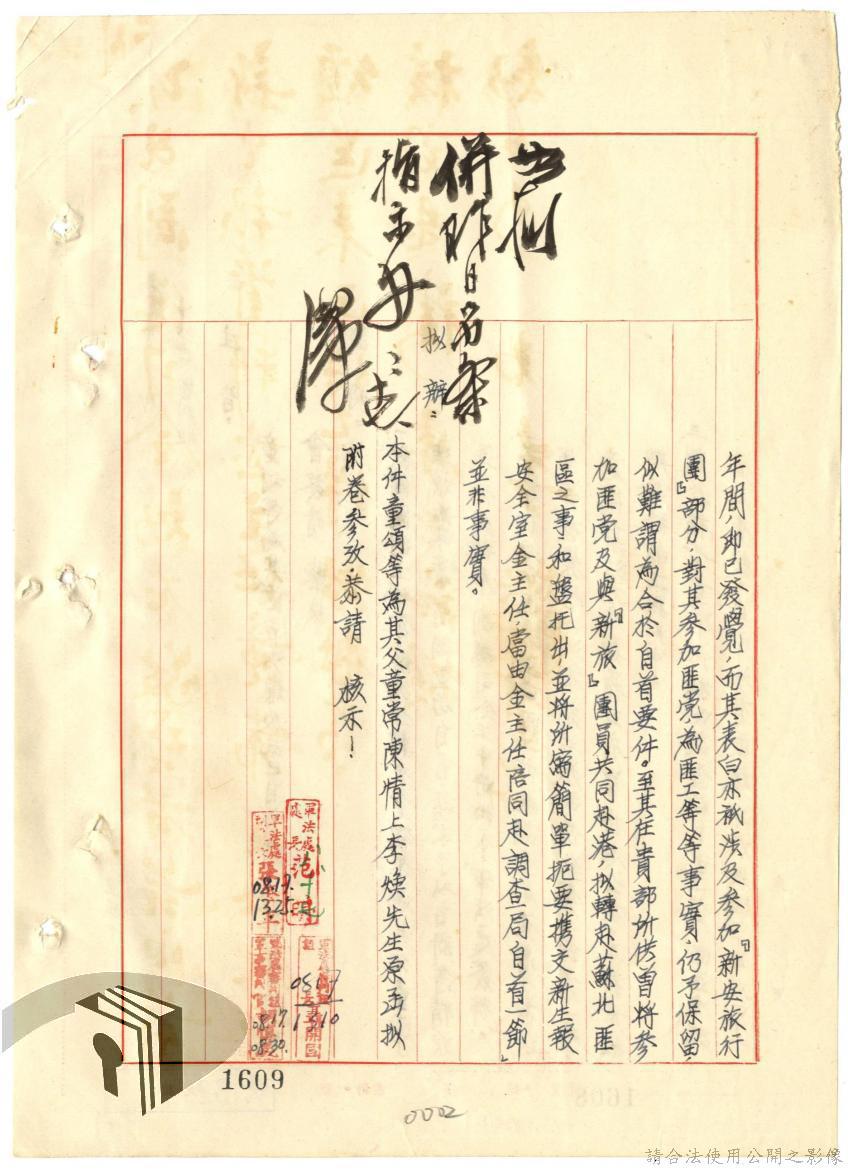 併昨日名案
指示
年間,即已發覺,而其表白亦祇涉及參加『新安旅行
團』部分,對其參加匪党為匪工等等事實,仍予保留,
似難謂為合於自首要件。至其在貴部所供曾將參
加匪党及與『新旅』團員共同赴港,拟轉赴蘇北匪
區之事和盤托出並將所編簡單扼要携交新生報
安全室金主任,當由金主任陪同赴調查局自首一節」
並非事實。
拟辦:
本件童頌等為其父童常陳情上李煥先生原函拟
附卷參攷。恭請 核示!
軍法處
處長
范
軍法處
08.17.
1325.
08.17
1310
08.17.
08.30.
1609
0002
請合法使用公開之影像